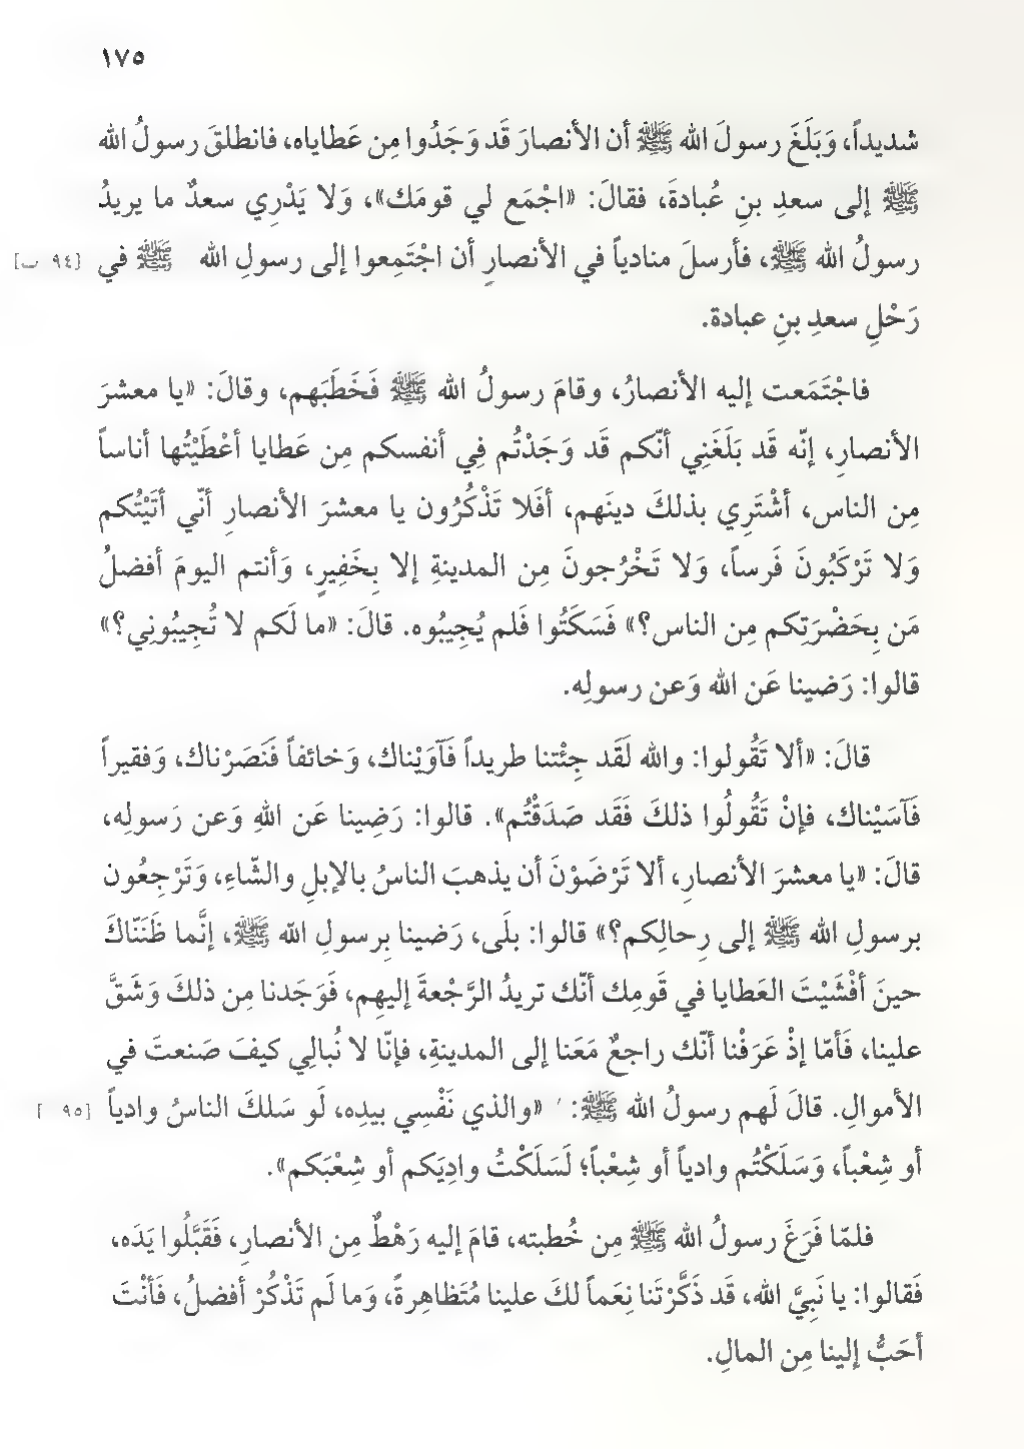 ١٧٥
شديداً، وَبَلَغَ رسولَ الله ﷺ أن الأنصارَ قَد وَجَدُوا مِن عَطاياه، فانطلقَ رسولُ الله
ﷺ إلى سعدِ بنِ عُبادةَ، فقالَ: «اجْمَع لي قومَك»، وَلا يَدْرِي سعدٌ ما يريدُ
رسولُ الله ﷺ، فأرسلَ منادياً في الأنصارِ أن اجْتَمِعوا إلى رسولِ الله ﷺ في [٩٤ ب]
رَحْلِ سعدِ بنِ عبادة.
فاجْتَمَعت إليه الأنصارُ، وقامَ رسولُ الله ﷺ فَخَطَبَهم، وقالَ: «يا معشرَ
الأنصارِ، إنّه قَد بَلَغَنِي أنّكم قَد وَجَدْتُم فِي أنفسكم مِن عَطايا أعْطَيْتُها أناساً
مِن الناس، أشْتَرِي بذلكَ دينَهم، أفَلا تَذْكُرُون يا معشرَ الأنصارِ أنّي أتَيْتُكم
وَلا تَرْكَبُونَ فَرساً، وَلا تَخْرُجونَ مِن المدينةِ إلا بِخَفِيرٍ، وَأنتم اليومَ أفضلُ
مَن بِحَضْرَتِكم مِن الناس؟» فَسَكَتُوا فَلم يُجِيبُوه. قالَ: «ما لَكم لا تُجِيبُونِي؟»
قالوا: رَضينا عَن الله وَعن رسولِه.
قالَ: «ألا تَقُولوا: والله لَقَد جِئْتنا طريداً فَآوَيْناك، وَخائفاً فَنَصَرْناك، وَفقيراً
فَآسَيْناك، فإنْ تَقُولُوا ذلكَ فَقَد صَدَقْتُم». قالوا: رَضِينا عَن اللهِ وَعن رَسولِه،
قالَ: «يا معشرَ الأنصارِ، ألا تَرْضَوْنَ أن يذهبَ الناسُ بالإبلِ والشّاءِ، وَتَرْجِعُون
برسولِ الله ﷺ إلى رِحالِكم؟» قالوا: بلَى، رَضينا بِرسولِ الله ﷺ، إنَّما ظَنَنّاكَ
حينَ أفْشَيْتَ العَطايا في قَومِك أنّك تريدُ الرَّجْعةَ إليهِم، فَوَجَدنا مِن ذلكَ وَشَقَّ
علينا، فَأمّا إذْ عَرَفْنا أنّك راجعٌ مَعَنا إلى المدينةِ، فإنّا لا نُبالِي كيفَ صَنعتَ في
الأموالِ. قالَ لَهم رسولُ الله ﷺ: «والذي نَفْسِي بيدِه، لَو سَلكَ الناسُ وادياً [٩٥ ]
أو شِعْباً، وَسَلَكْتُم وادياً أو شِعْباً؛ لَسَلَكْتُ وادِيَكم أو شِعْبَكم».
فلمّا فَرَغَ رسولُ الله ﷺ مِن خُطبته، قامَ إليه رَهْطٌ مِن الأنصارِ، فَقَبَّلُوا يَدَه،
فَقالوا: يا نَبِيَّ الله، قَد ذَكَّرْتَنا نِعَماً لكَ علينا مُتَظاهِرةً، وَما لَم تَذْكُرْ أفضلُ، فَأنْتَ
أحَبُّ إلينا مِن المالِ.